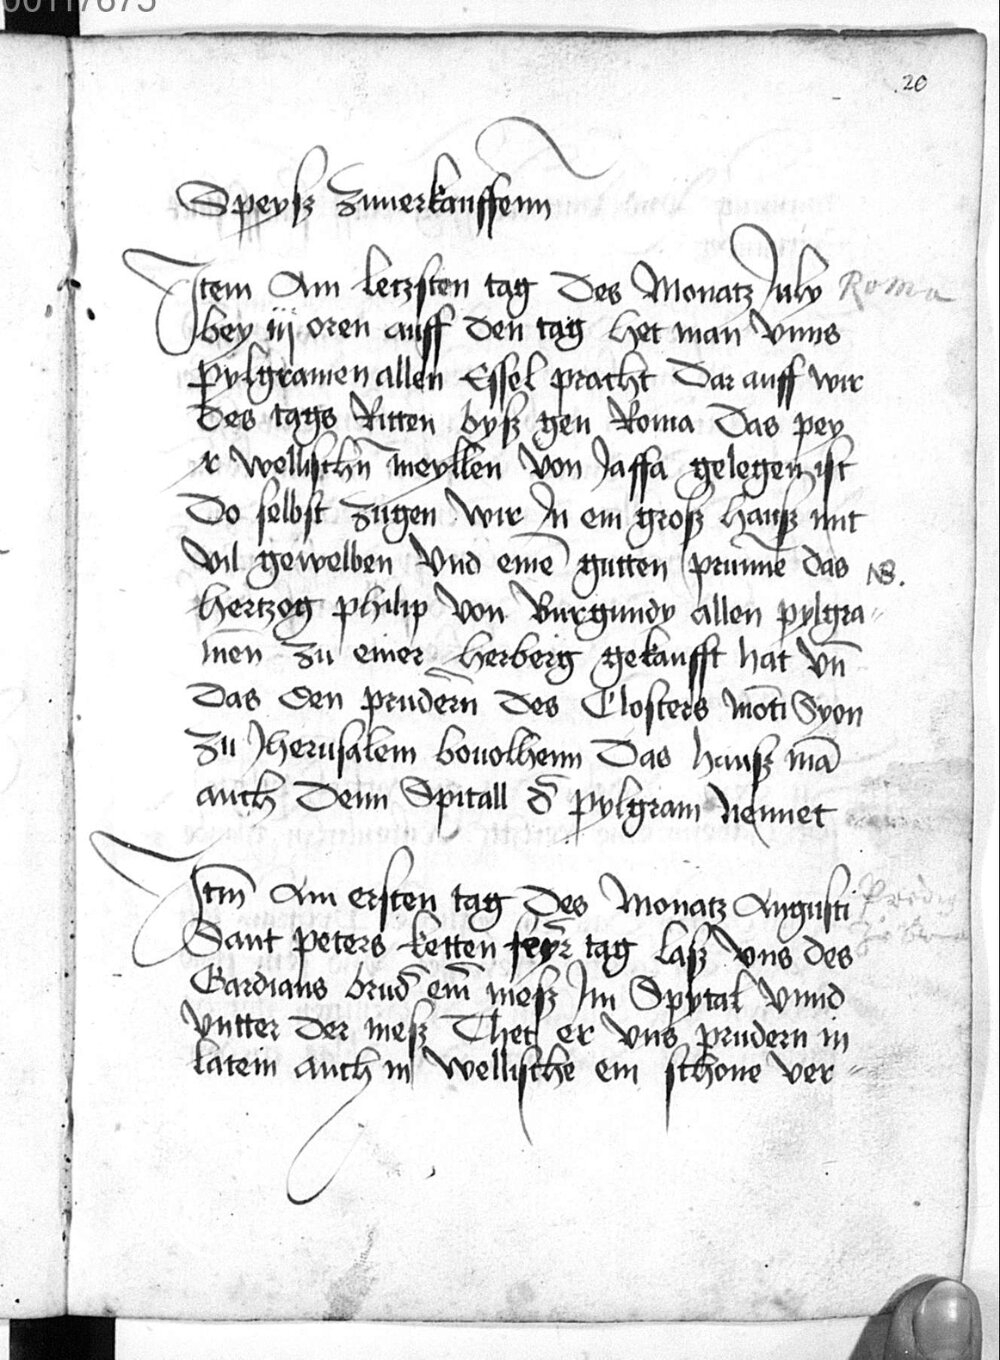 20
Speysz zuuerkauffenn
Item Am letzsten tag Des Monatz July Roma
bey iij oren auff den tag het man vnns
pylgramen allen Essel pracht Dar auff wir
des tags Ritten bysz gen Roma Das pey
x wellischn̄ meyllen von Jaffa gelegen ist
Do selbst zugen wir In ein grosz hausz mit
vil gewelben vnd einē gutten prunnē das NB.
hertzog philip von Burgundy allen pylgra⸗
men̄ zu einer herberg gekaufft hat vn̄
das den prudern̄ des Closters mōti Syon
zu Jherusalem beuolhenn Das hausz mā
auch Denn Spitall d̄ pylgram nennet
Itm̄ Am ersten tag Des Monatz Augusti
Sant peters ketten feyr tag lasz vns des
Gardians brud̄ ein̄ mesz Im Spytal vnnd
vntter der mesz Thet er vns prudern in
latein auch in wellische ein schone ver⸗